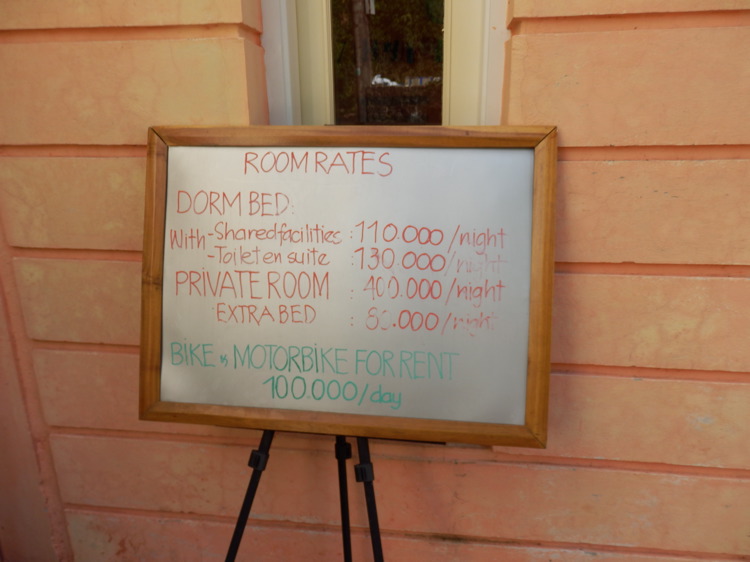 ROOM RATES
DORM BED:
With - Shared facilities : 110.000/night
- Toilet en suite : 130.000/night
PRIVATE ROOM : 400.000/night
EXTRA BED : .000/night
BIKE & MOTORBIKE FOR RENT
100.000/day